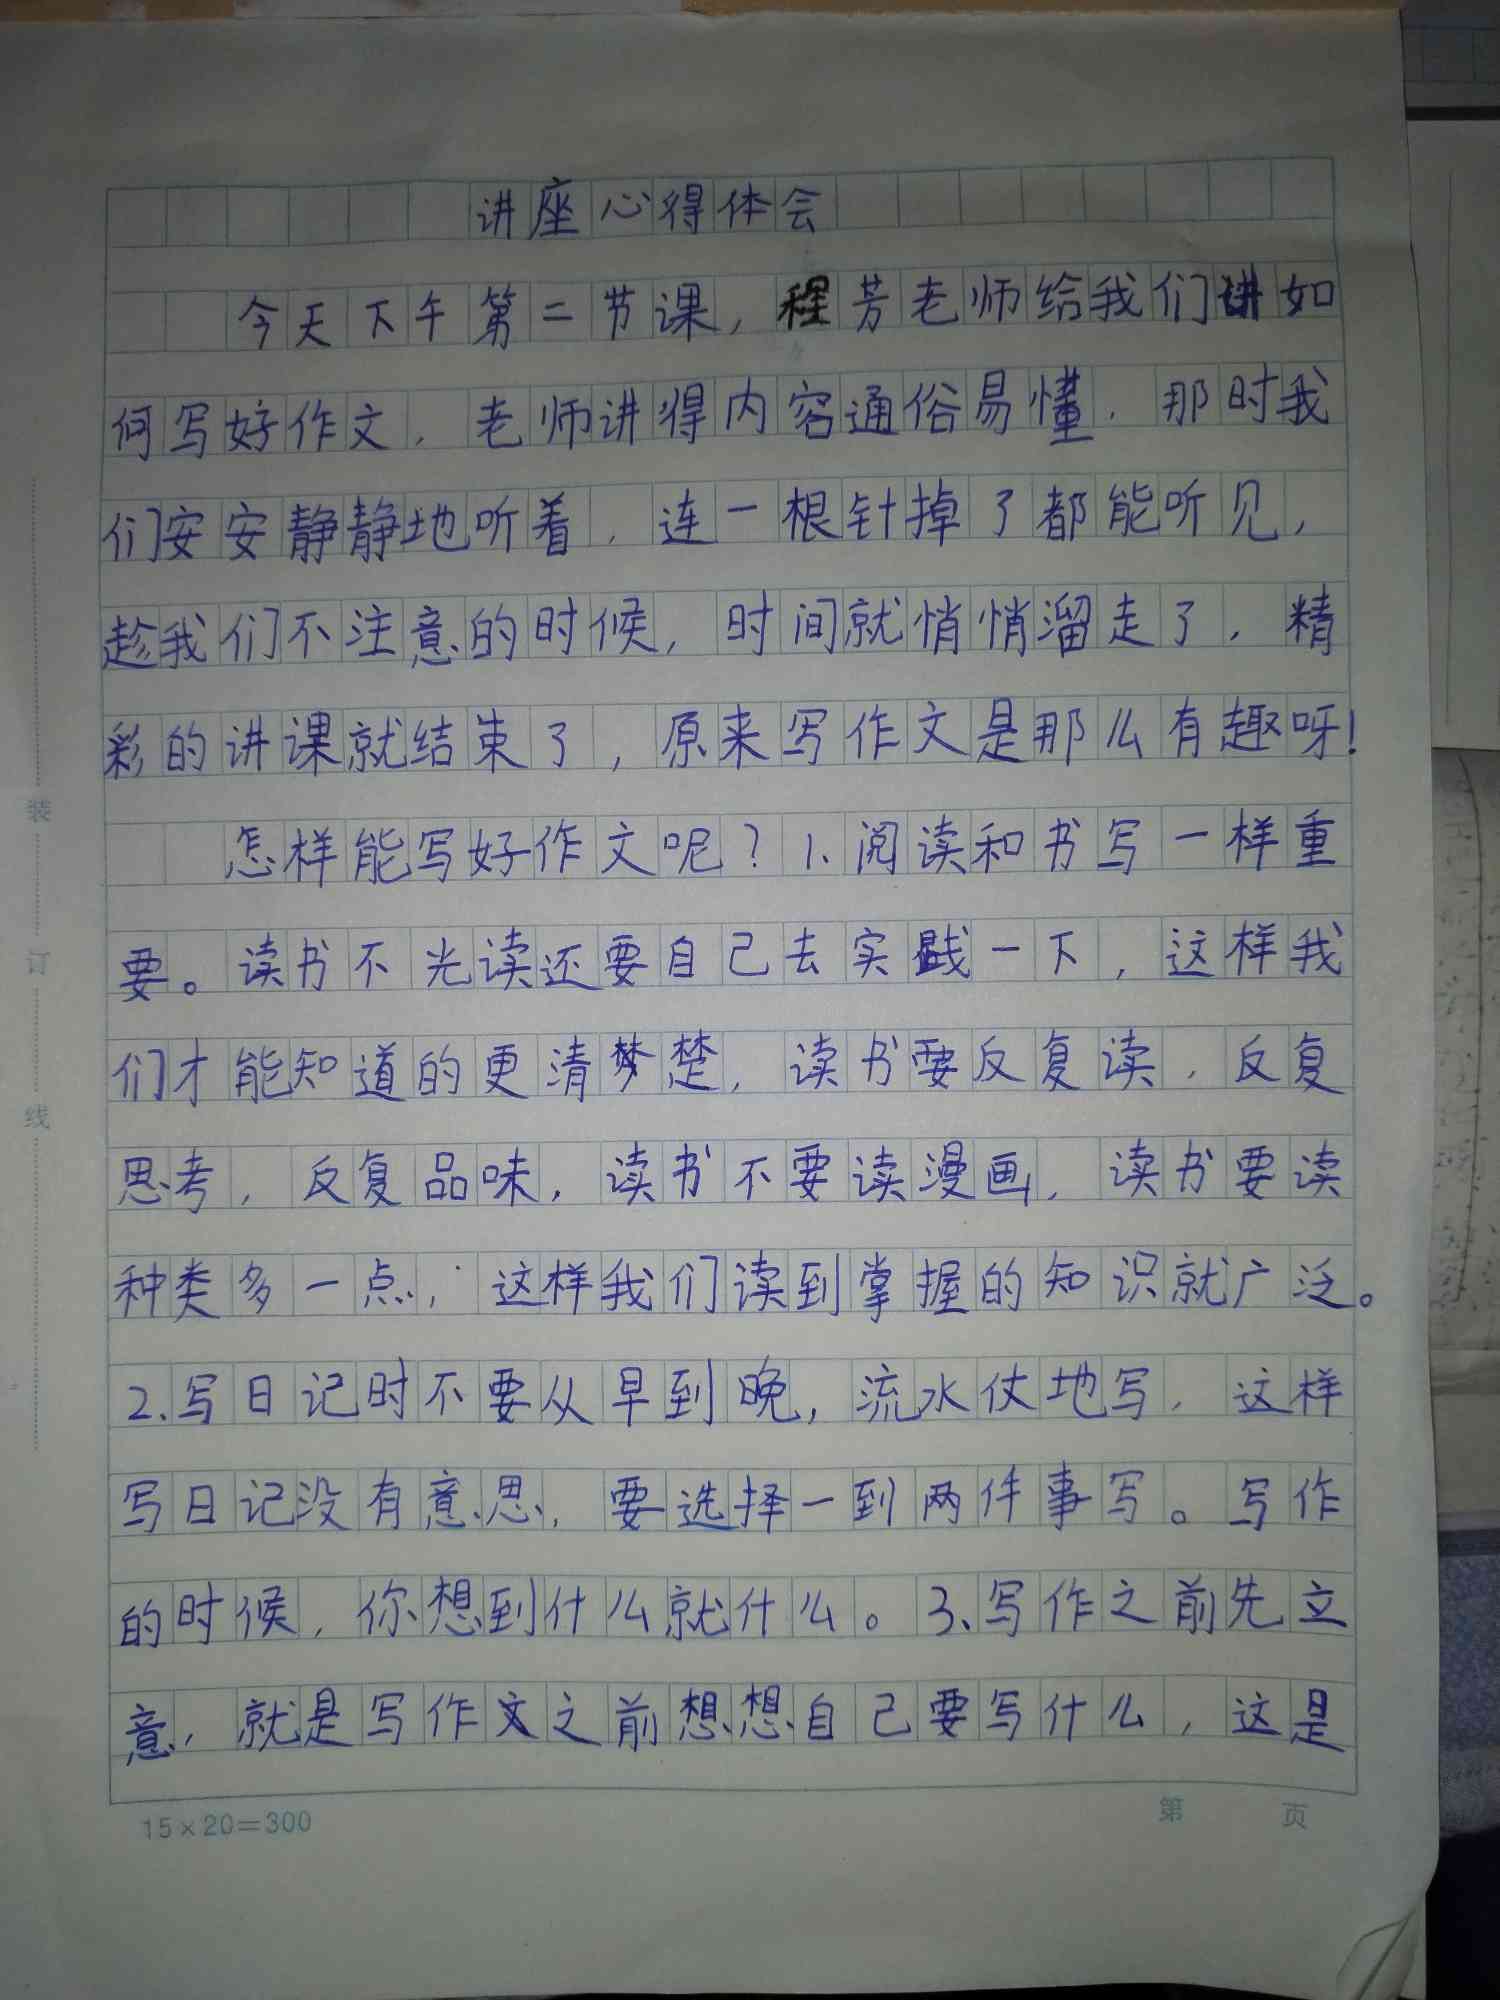 讲座心得体会
今天下午第二节课，程芳老师给我们讲如
何写好作文，老师讲得内容通俗易懂，那时我
们安安静静地听着，连一根针掉了都能听见，
趁我们不注意的时候，时间就悄悄溜走了，精
彩的讲课就结束了，原来写作文是那么有趣呀！
怎样能写好作文呢？1、阅读和书写一样重
要。读书不光读还要自己去实践一下，这样我
们才能知道的更清楚，读书要反复读，反复
思考，反复品味，读书不要读漫画，读书要读
种类多一点，这样我们读到掌握的知识就广泛。
2、写日记时不要从早到晚，流水仗地写，这样
写日记没有意思，要选择一到两件事写。写作
的时候，你想到什么就什么。3、写作之前先立
意，就是写作文之前想想自己要写什么，这是
15×20=300
第 页
装
订
线